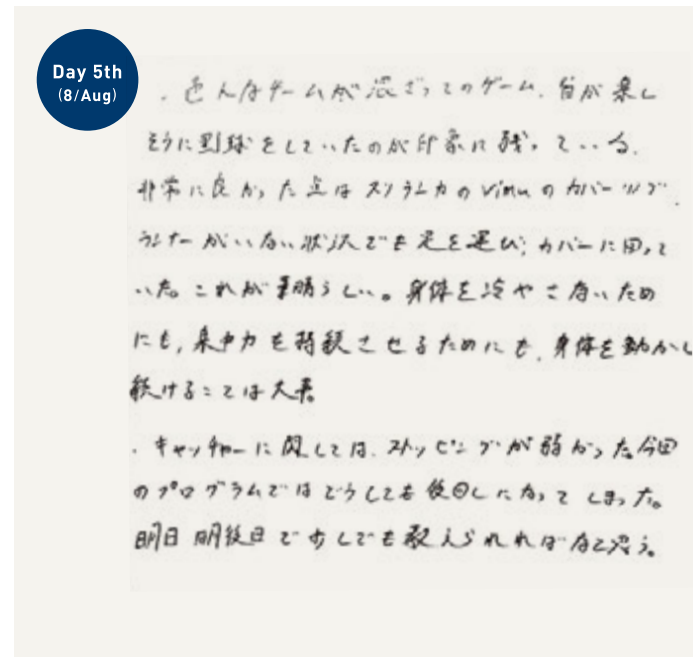 Day 5th
(8/Aug)
・色んなチームが混ざってのゲーム。皆が楽し
そうに野球をしていたのが印象に残っている。
非常に良かった点はスリランカのVimuのカバーリング。
ランナーがいない状況でも足を運び、カバーに回って
いた。これが素晴らしい。身体を冷やさないため
にも、集中力を持続させるためにも、身体を動かし
続けることは大事。
・キャッチャーに関しては、ストッピングが弱かった。今回
のプログラムではどうしても後回しになってしまった。
明日明後日で少しでも教えられればなと思う。